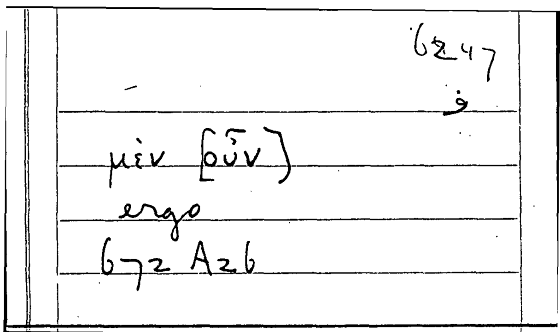 6247
ف
μὲν [οὖν]
ergo
672 A26